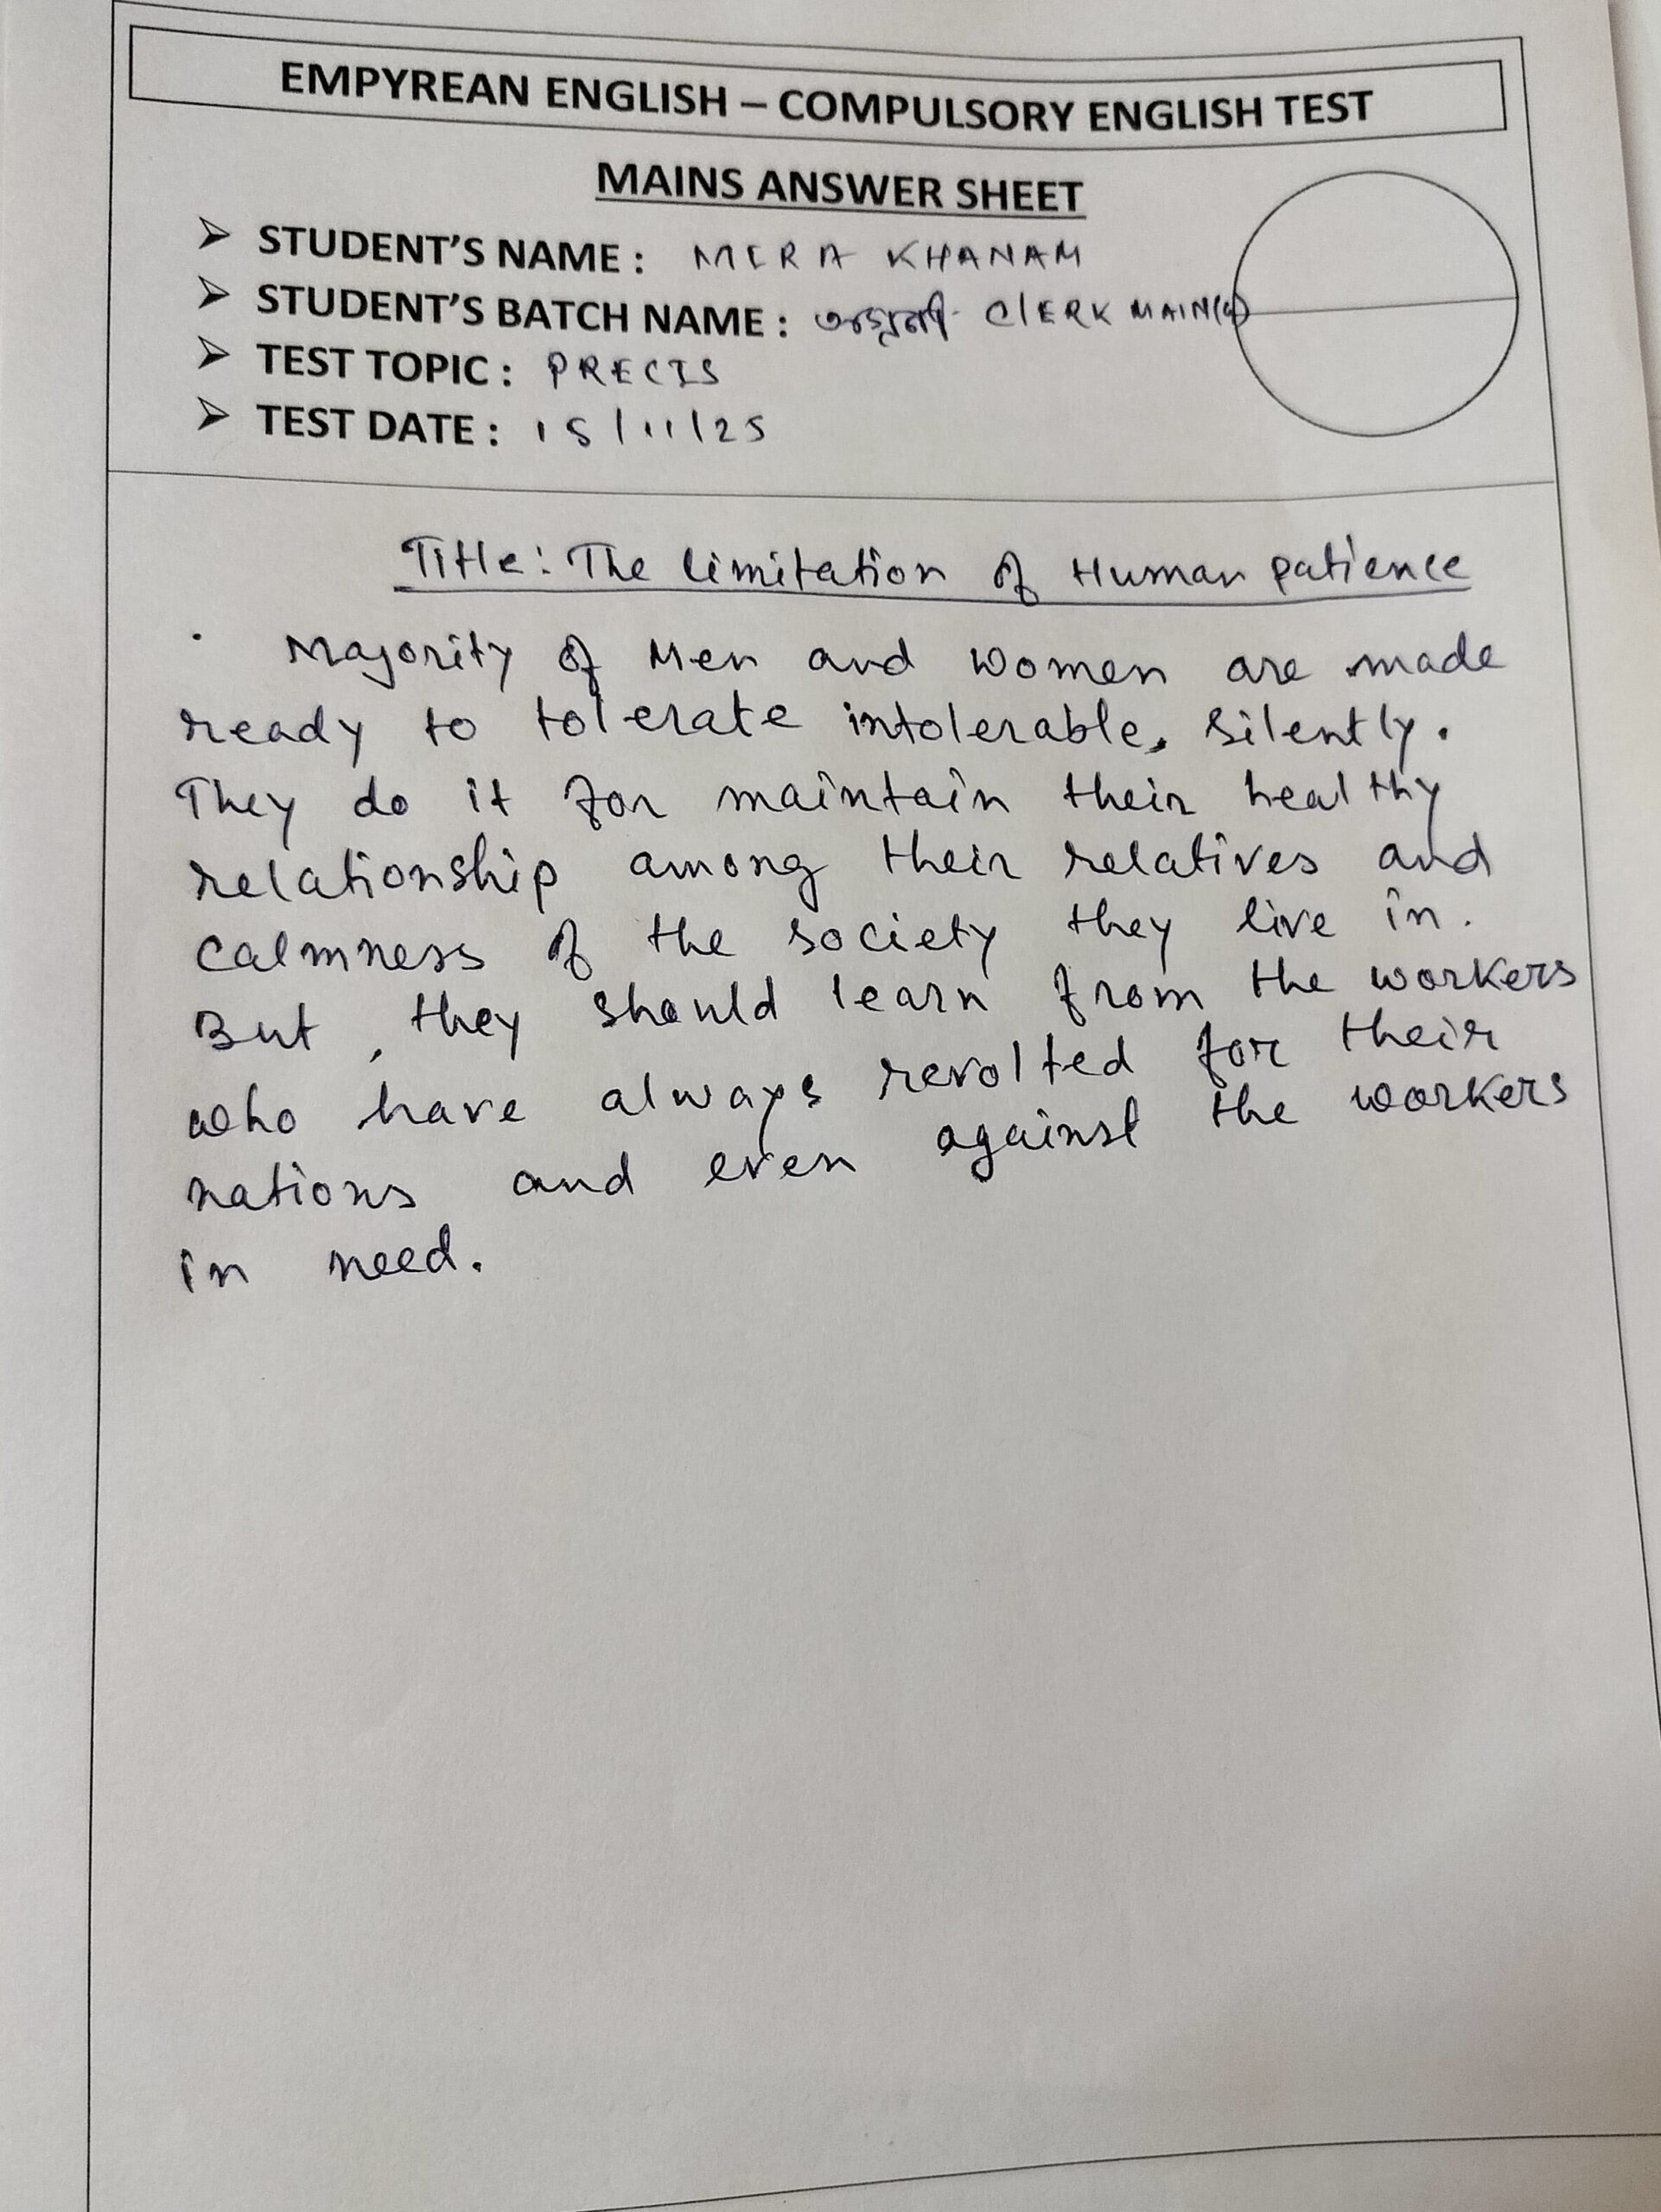 EMPYREAN ENGLISH – COMPULSORY ENGLISH TEST
MAINS ANSWER SHEET
➢ STUDENT'S NAME : MERA KHANAM
➢ STUDENT'S BATCH NAME : CLERK MAIN
➢ TEST TOPIC : PRECIS
➢ TEST DATE : 15/11/25
Title: The limitation of Human patience
Majority of Men and Women are made
ready to tolerate intolerable, silently.
They do it for maintain their healthy
relationship among their relatives and
calmness of the society they live in.
But, they should learn from the workers
who have always revolted for their
nations and even against the workers
in need.